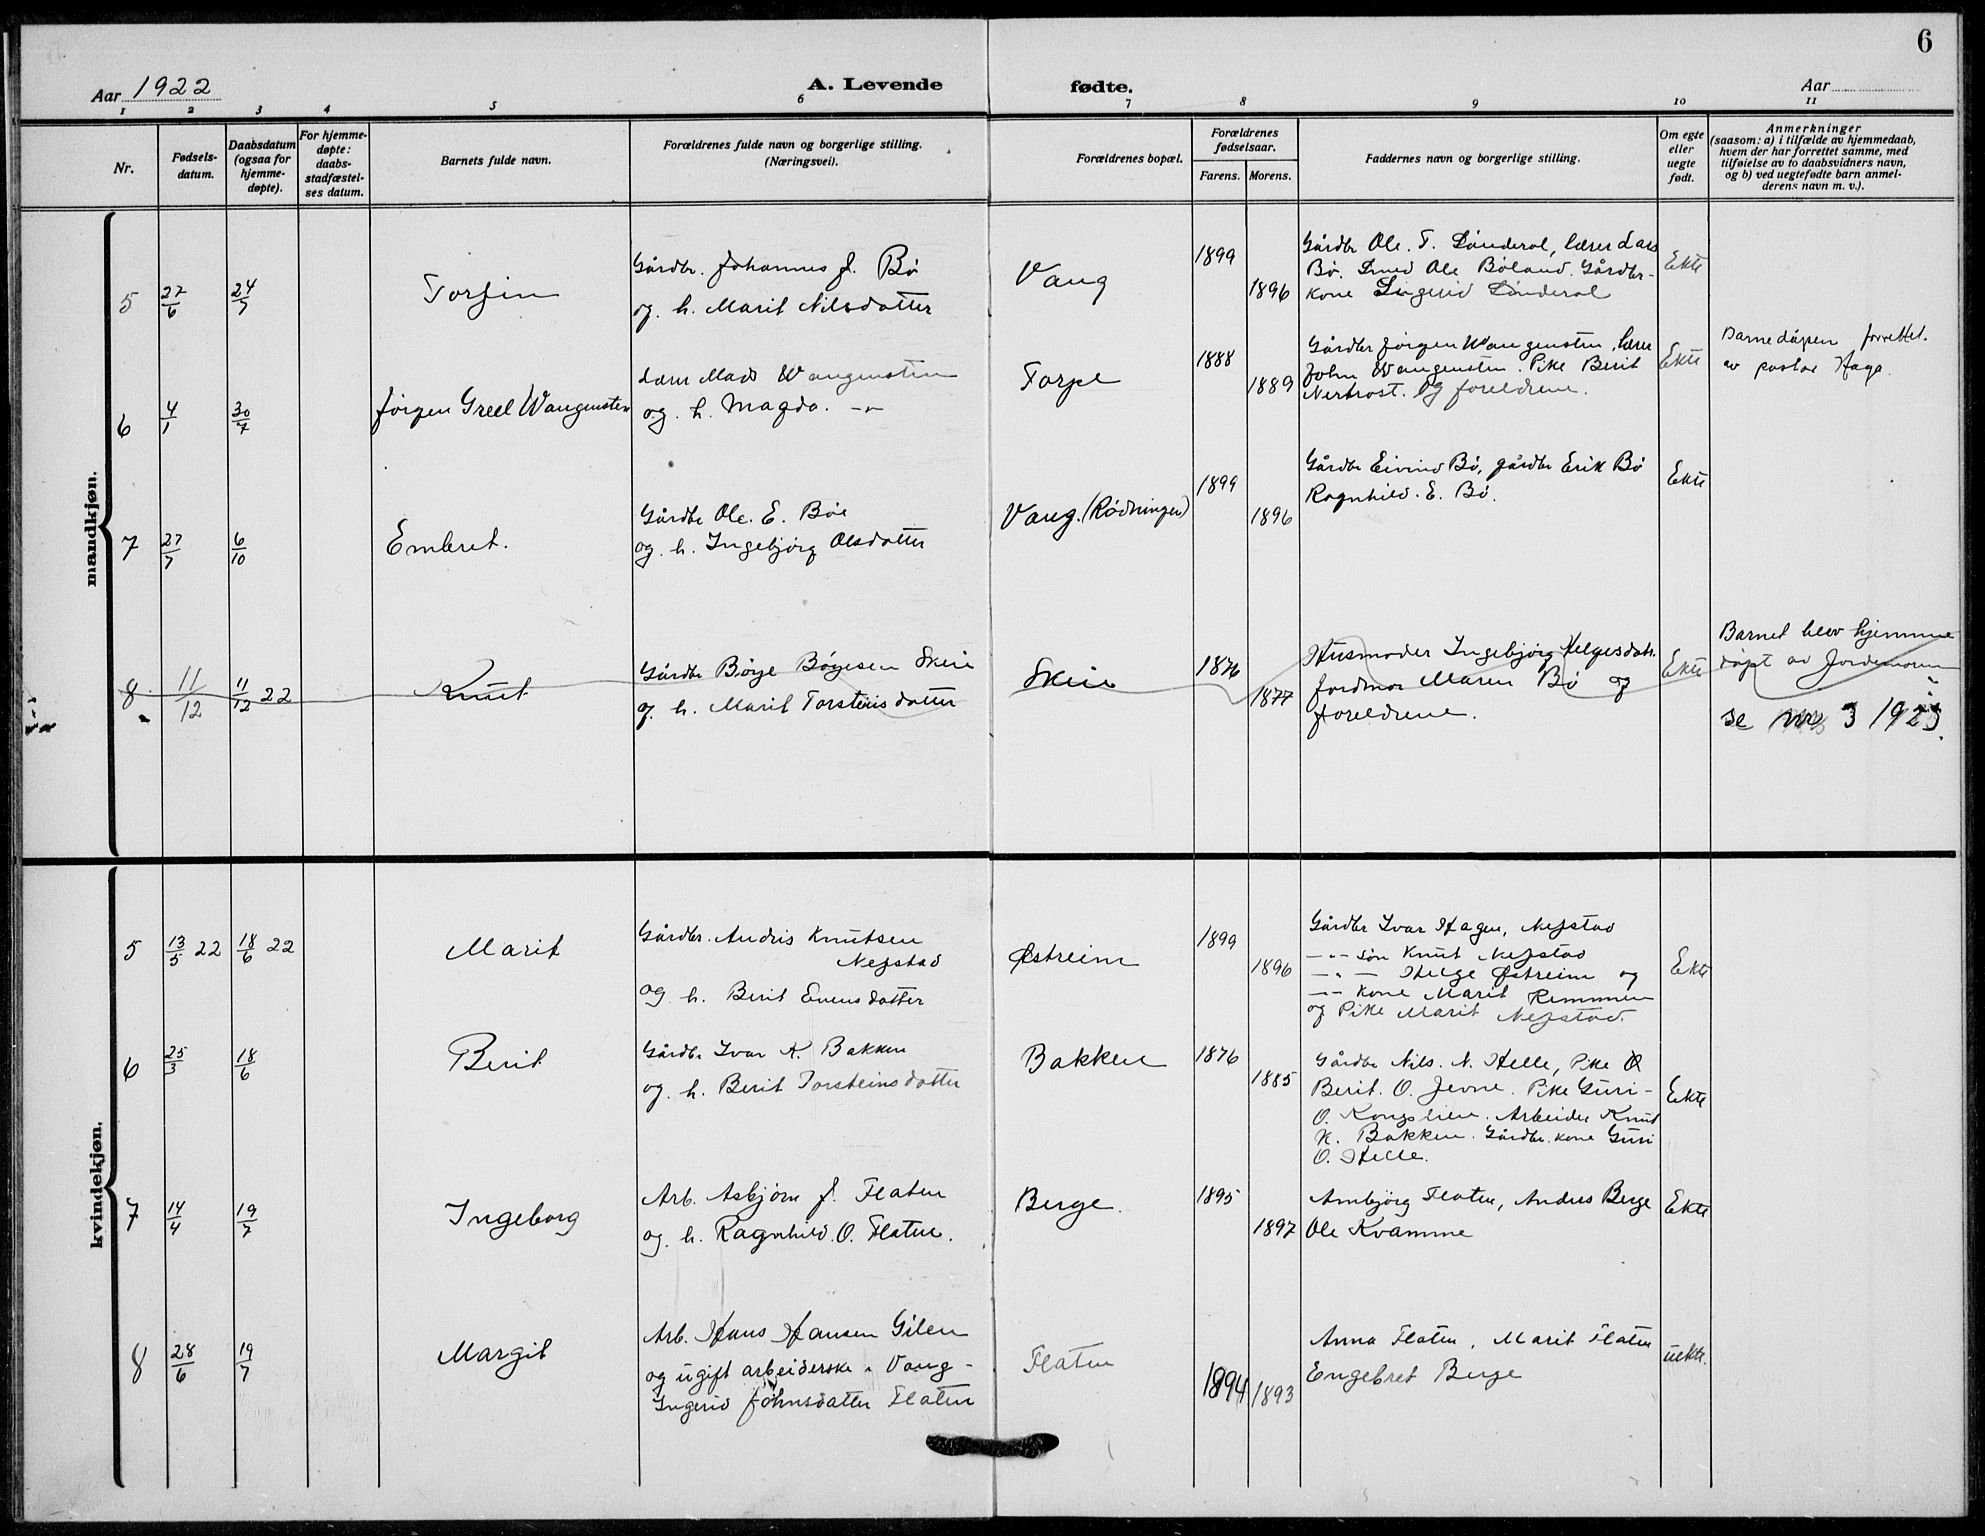 6
Aar 1922
A. Levende
fødte.
Aar
1 2 3 4 5 6 7 8 9 10 11
Nr.
Fødsels-
datum.
Daabsdatum
(ogsaa for
hjemme-
døpte).
For hjemme-
døpte:
daabs-
stadfæstel-
ses datum.
Barnets fulde navn.
Forældrenes fulde navn og borgerlige stilling.
(Næringsvei).
Forældrenes bopæl.
Forældrenes
fødselsaar.
Farens. Morens.
Faddernes navn og borgerlige stilling.
Om egte
eller
uegte
født.
Anmerkninger
(saasom: a) i tilfælde av hjemmedaab,
hvem der har forrettet samme, med
tilføielse av to daabsvidners navn,
og b) ved uegtefødte barn anmel-
derens navn m. v.).
mandkjøn.
5 27/6 24/7 Torfin
Gårdbr. Johannes J. Bø
og h. Marit Nilsdatter
Vang
1899
1896
Gårdbr Ole. T. Sønderol, lærer Lars
Bø. Smed Ole Bøland. Gårdbr-
kone Singerid Sønderol
Ekte
6 4/1 30/7 Jörgen Greel Wangensten
Lærer Mads Wangensten
og. h. Magda. -"-
Torpe
1888
1889
Gårdbr Jörgen Wangensten, lærer
John Wangensten. Pike Berit
Nertrost. Og foreldrene.
Ekte
Barnedåpen forrettet.
av pastor Haga.
7 27/7 6/10 Embret.
Gårdbr Ole. E. Bøe
og. h. Ingebjörg Olsdatter
Vang. (Rødningen)
1899
1896
Gårdbr Eivind Bø, gårdbr Erik Bø
Ragnhild. E. Bø.
Ekte
8 11/12 11/12 22 Knut
Gårdbr Börge Börgesen Skeie
og. h. Marit Torsteinsdatter
Skeie
1876
1877
Husmoder Ingebjörg Helgesdatr.
Jordmor Maren Bø og
foreldrene.
Ekte
Barnet blev hjemme
döpt av Jordemoren
se nr 3 1923.
kvindekjøn.
5 13/5 22 18/6 22 Marit
Gårdbr. Andris Knutsen
Nefstad
og h. Berit Evensdatter
Østreim
1899
1896
Gårdbr Ivar Hagen, Nefstad
-"- sön Knut Nefstad
-"- - Helge Østreim og
-"- kone Marit Remmen
og Pike Marit Nefstad.
Ekte
6 25/3 18/6 Berit
Gårdbr Ivar K. Bakken
og. h. Berit Torsteinsdatter
Bakken
1876
1885
Gårdbr Nils. N. Helle, Pike
Berit. O. Jevne. Pike Guri-
O. Kongslien. Arbeider Knut
K. Bakken. Gårdbr. kone Guri
O. Helle.
Ekte
7 14/4 19/7 Ingeborg
Arb. Asbjörn J. Flaten
og. h. Ragnhild. O. Flaten.
Berge.
1895
1897
Arnbjörg Flaten, Anders Berge
Ole Kvamme
Ekte
8 28/6 19/7 Margit
Arb. Hans Hansen Gilen
og ugift arbeiderske i Vang -
Ingerid Johnsdatter Flaten
Flaten
1894
1893
Anna Flaten, Marit Flaten
Engebret Berge
uekte.